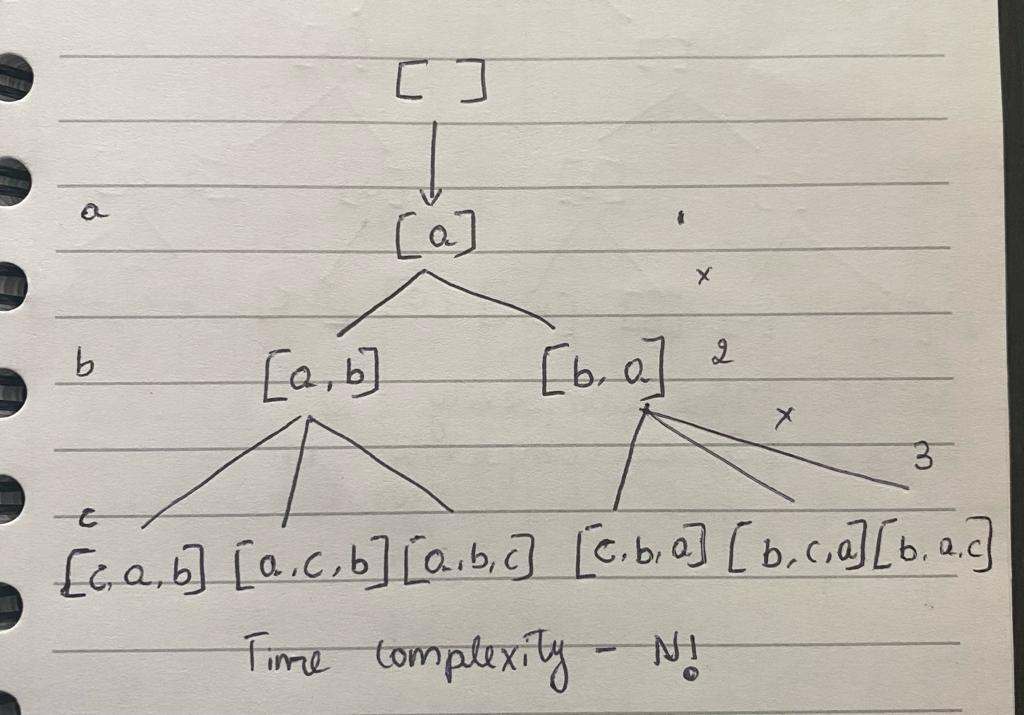 [ ]
a [a] 1
x
b [a, b] [b, a] 2
x
3
c
[c, a, b] [a, c, b] [a, b, c] [c, b, a] [b, c, a] [b, a, c]
Time complexity - N!